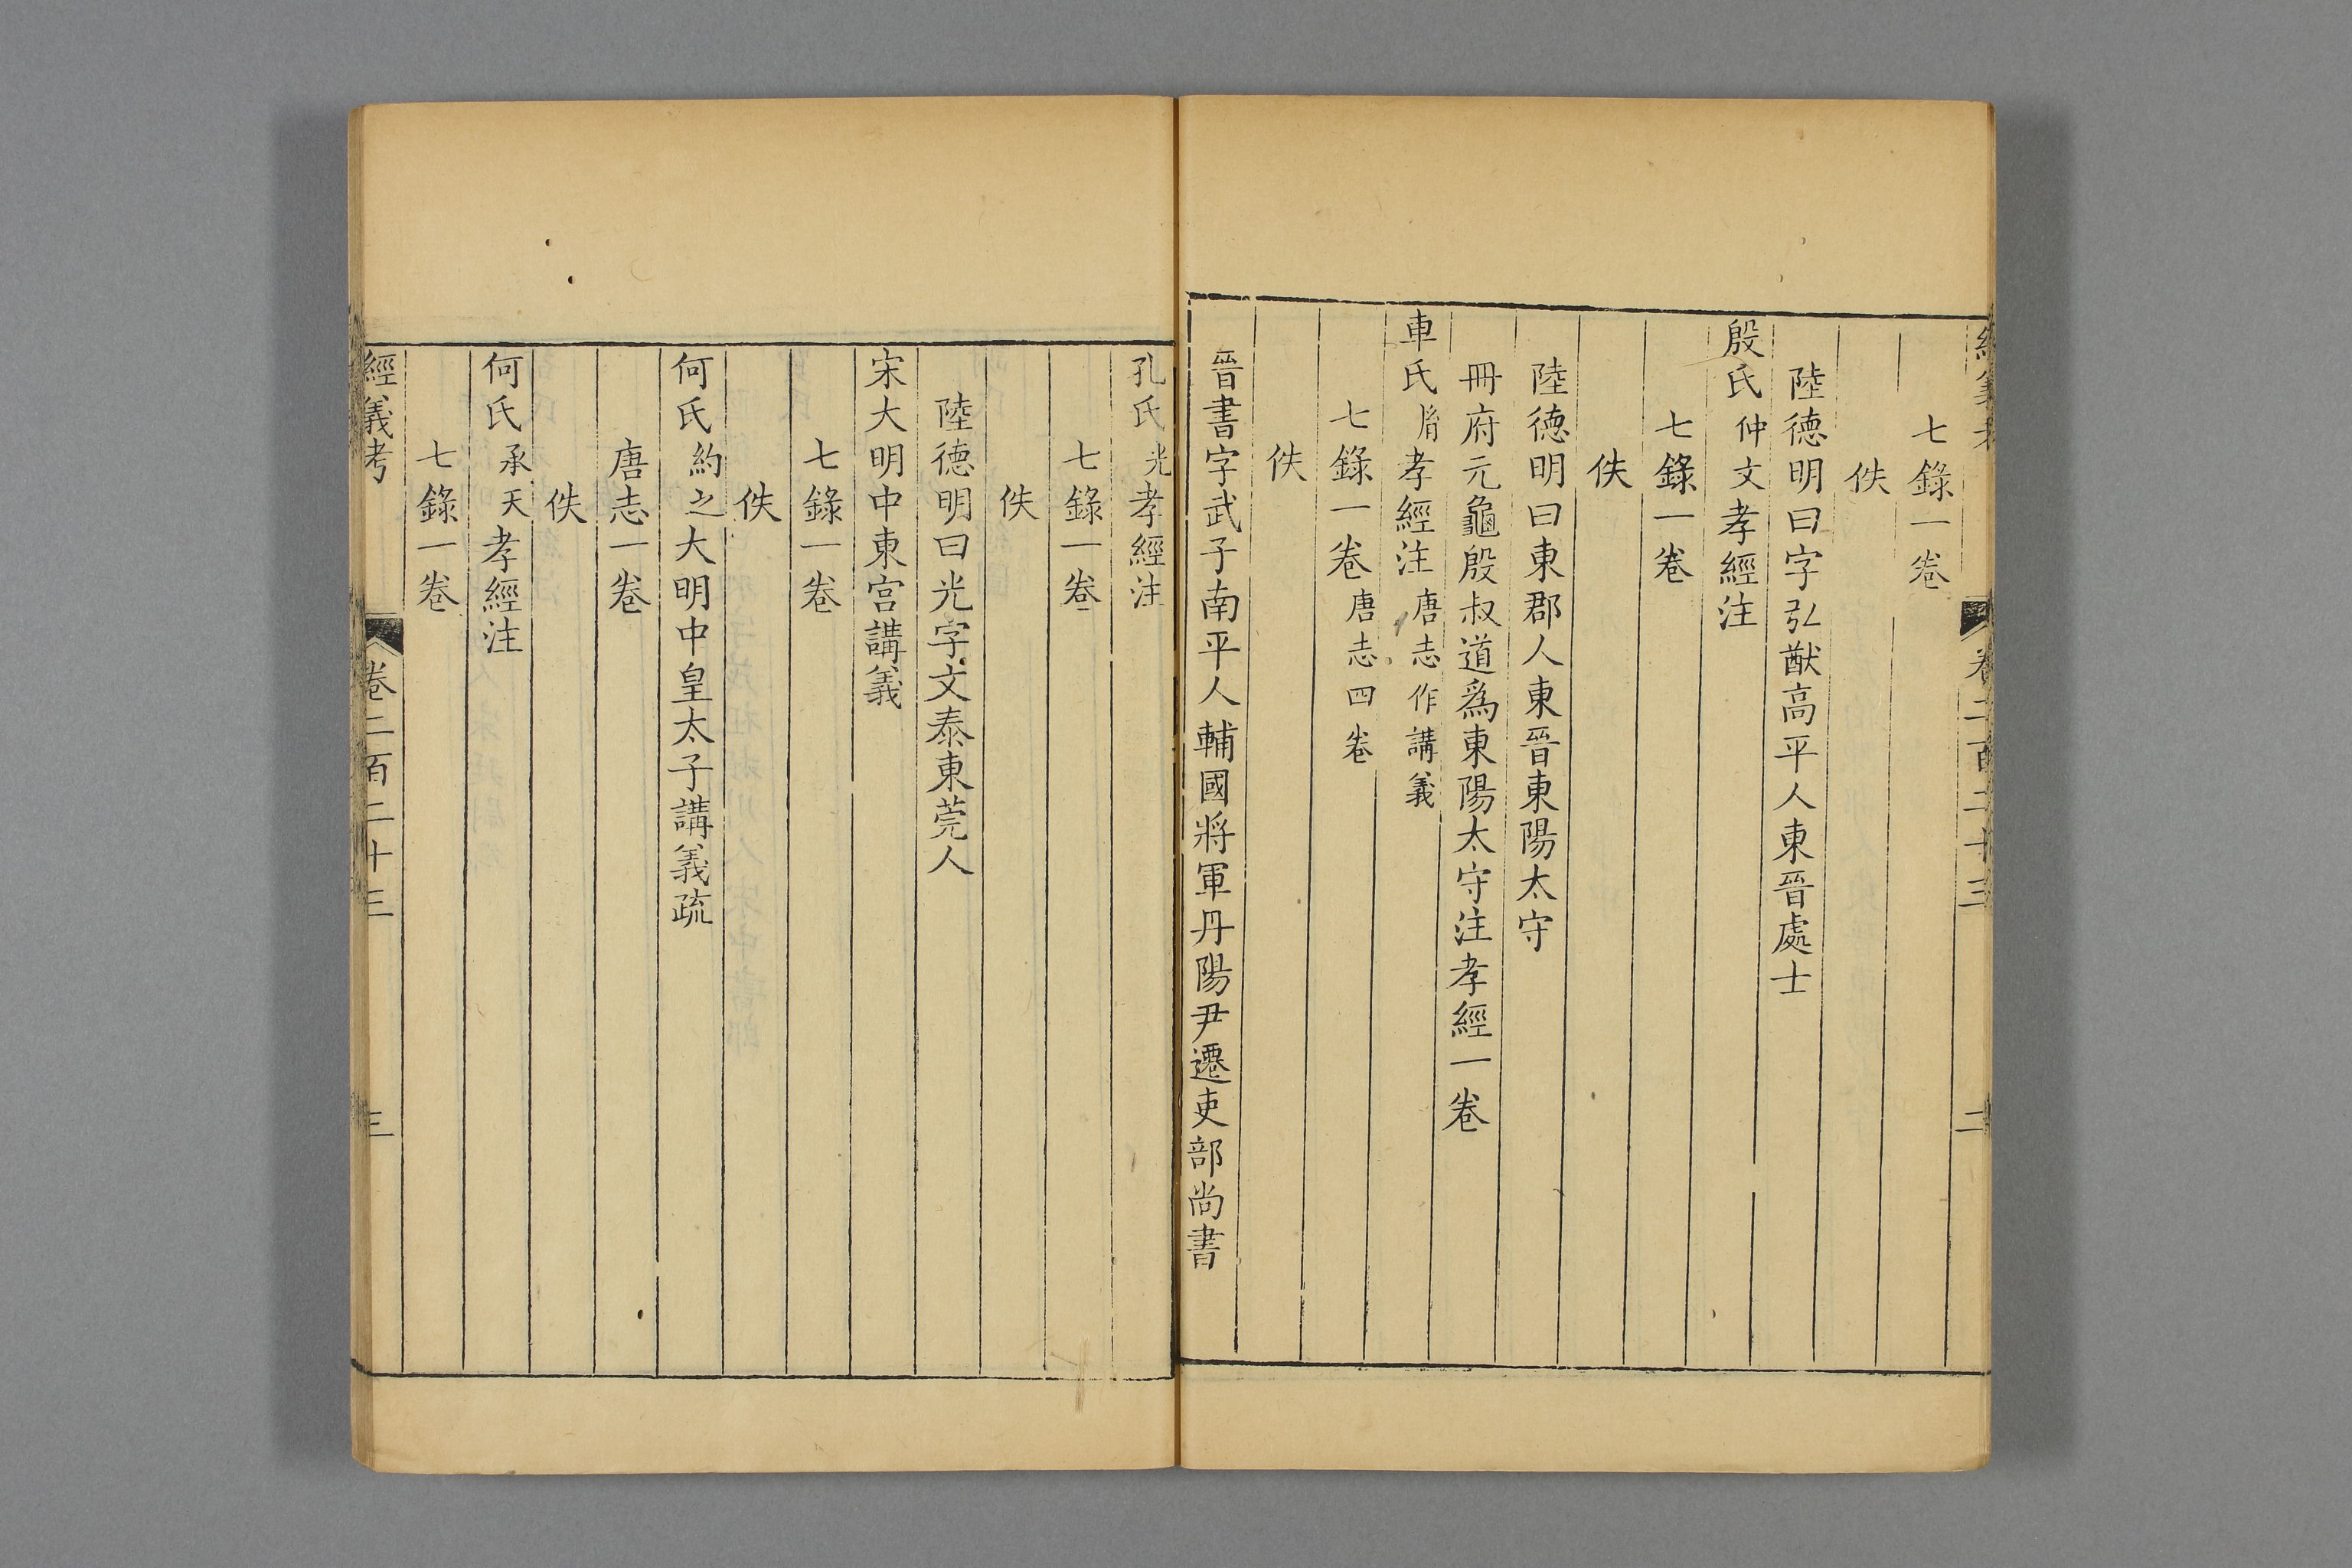 經義考 卷二百二十三 二
七錄一卷
佚
陸德明曰字弘猷高平人東晉處士
殷氏仲文孝經注
七錄一卷
佚
陸德明曰東郡人東晉東陽太守
冊府元龜殷叔道爲東陽太守注孝經一卷
車氏胤孝經注唐志作講義
七錄一卷唐志四卷
佚
晉書字武子南平人輔國將軍丹陽尹遷吏部尚書
孔氏光孝經注
七錄一卷
佚
陸德明曰光字文泰東莞人
宋大明中東宮講義
七錄一卷
佚
何氏約之大明中皇太子講義疏
唐志一卷
佚
何氏承天孝經注
七錄一卷
經義考 卷二百二十三 三